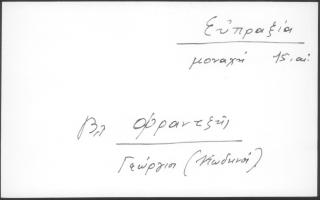 Εὐπραξία
μοναχή 15. αἰ.
βλ Φραντζῆς
Γεώργιος (